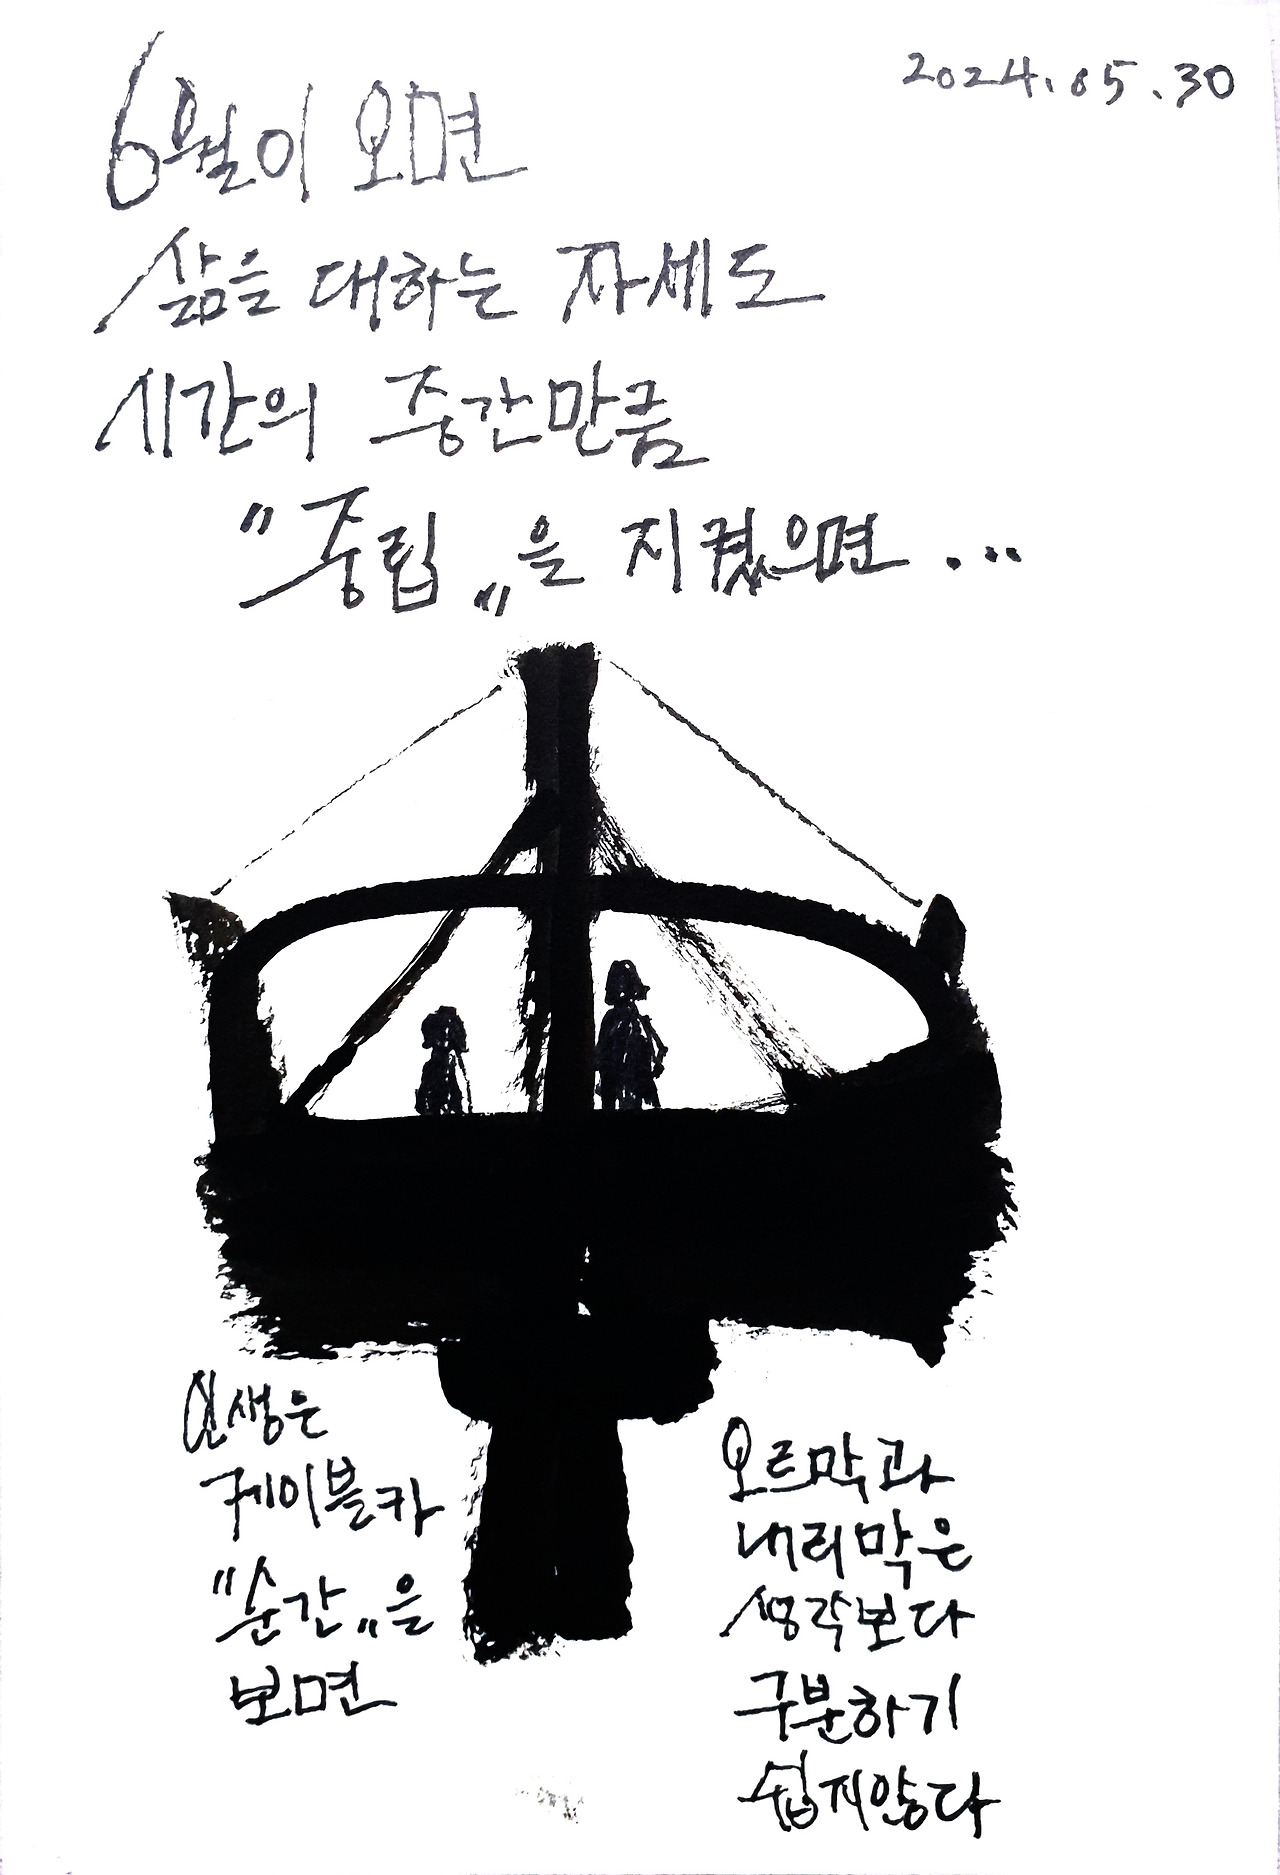 2024.05.30
6월이 오면
삶을 대하는 자세도
시간의 중간만큼
"중립"을 지켰으면...
인생은
케이블카
"순간"을
보면
오르막과
내리막은
생각보다
구분하기
쉽지않다